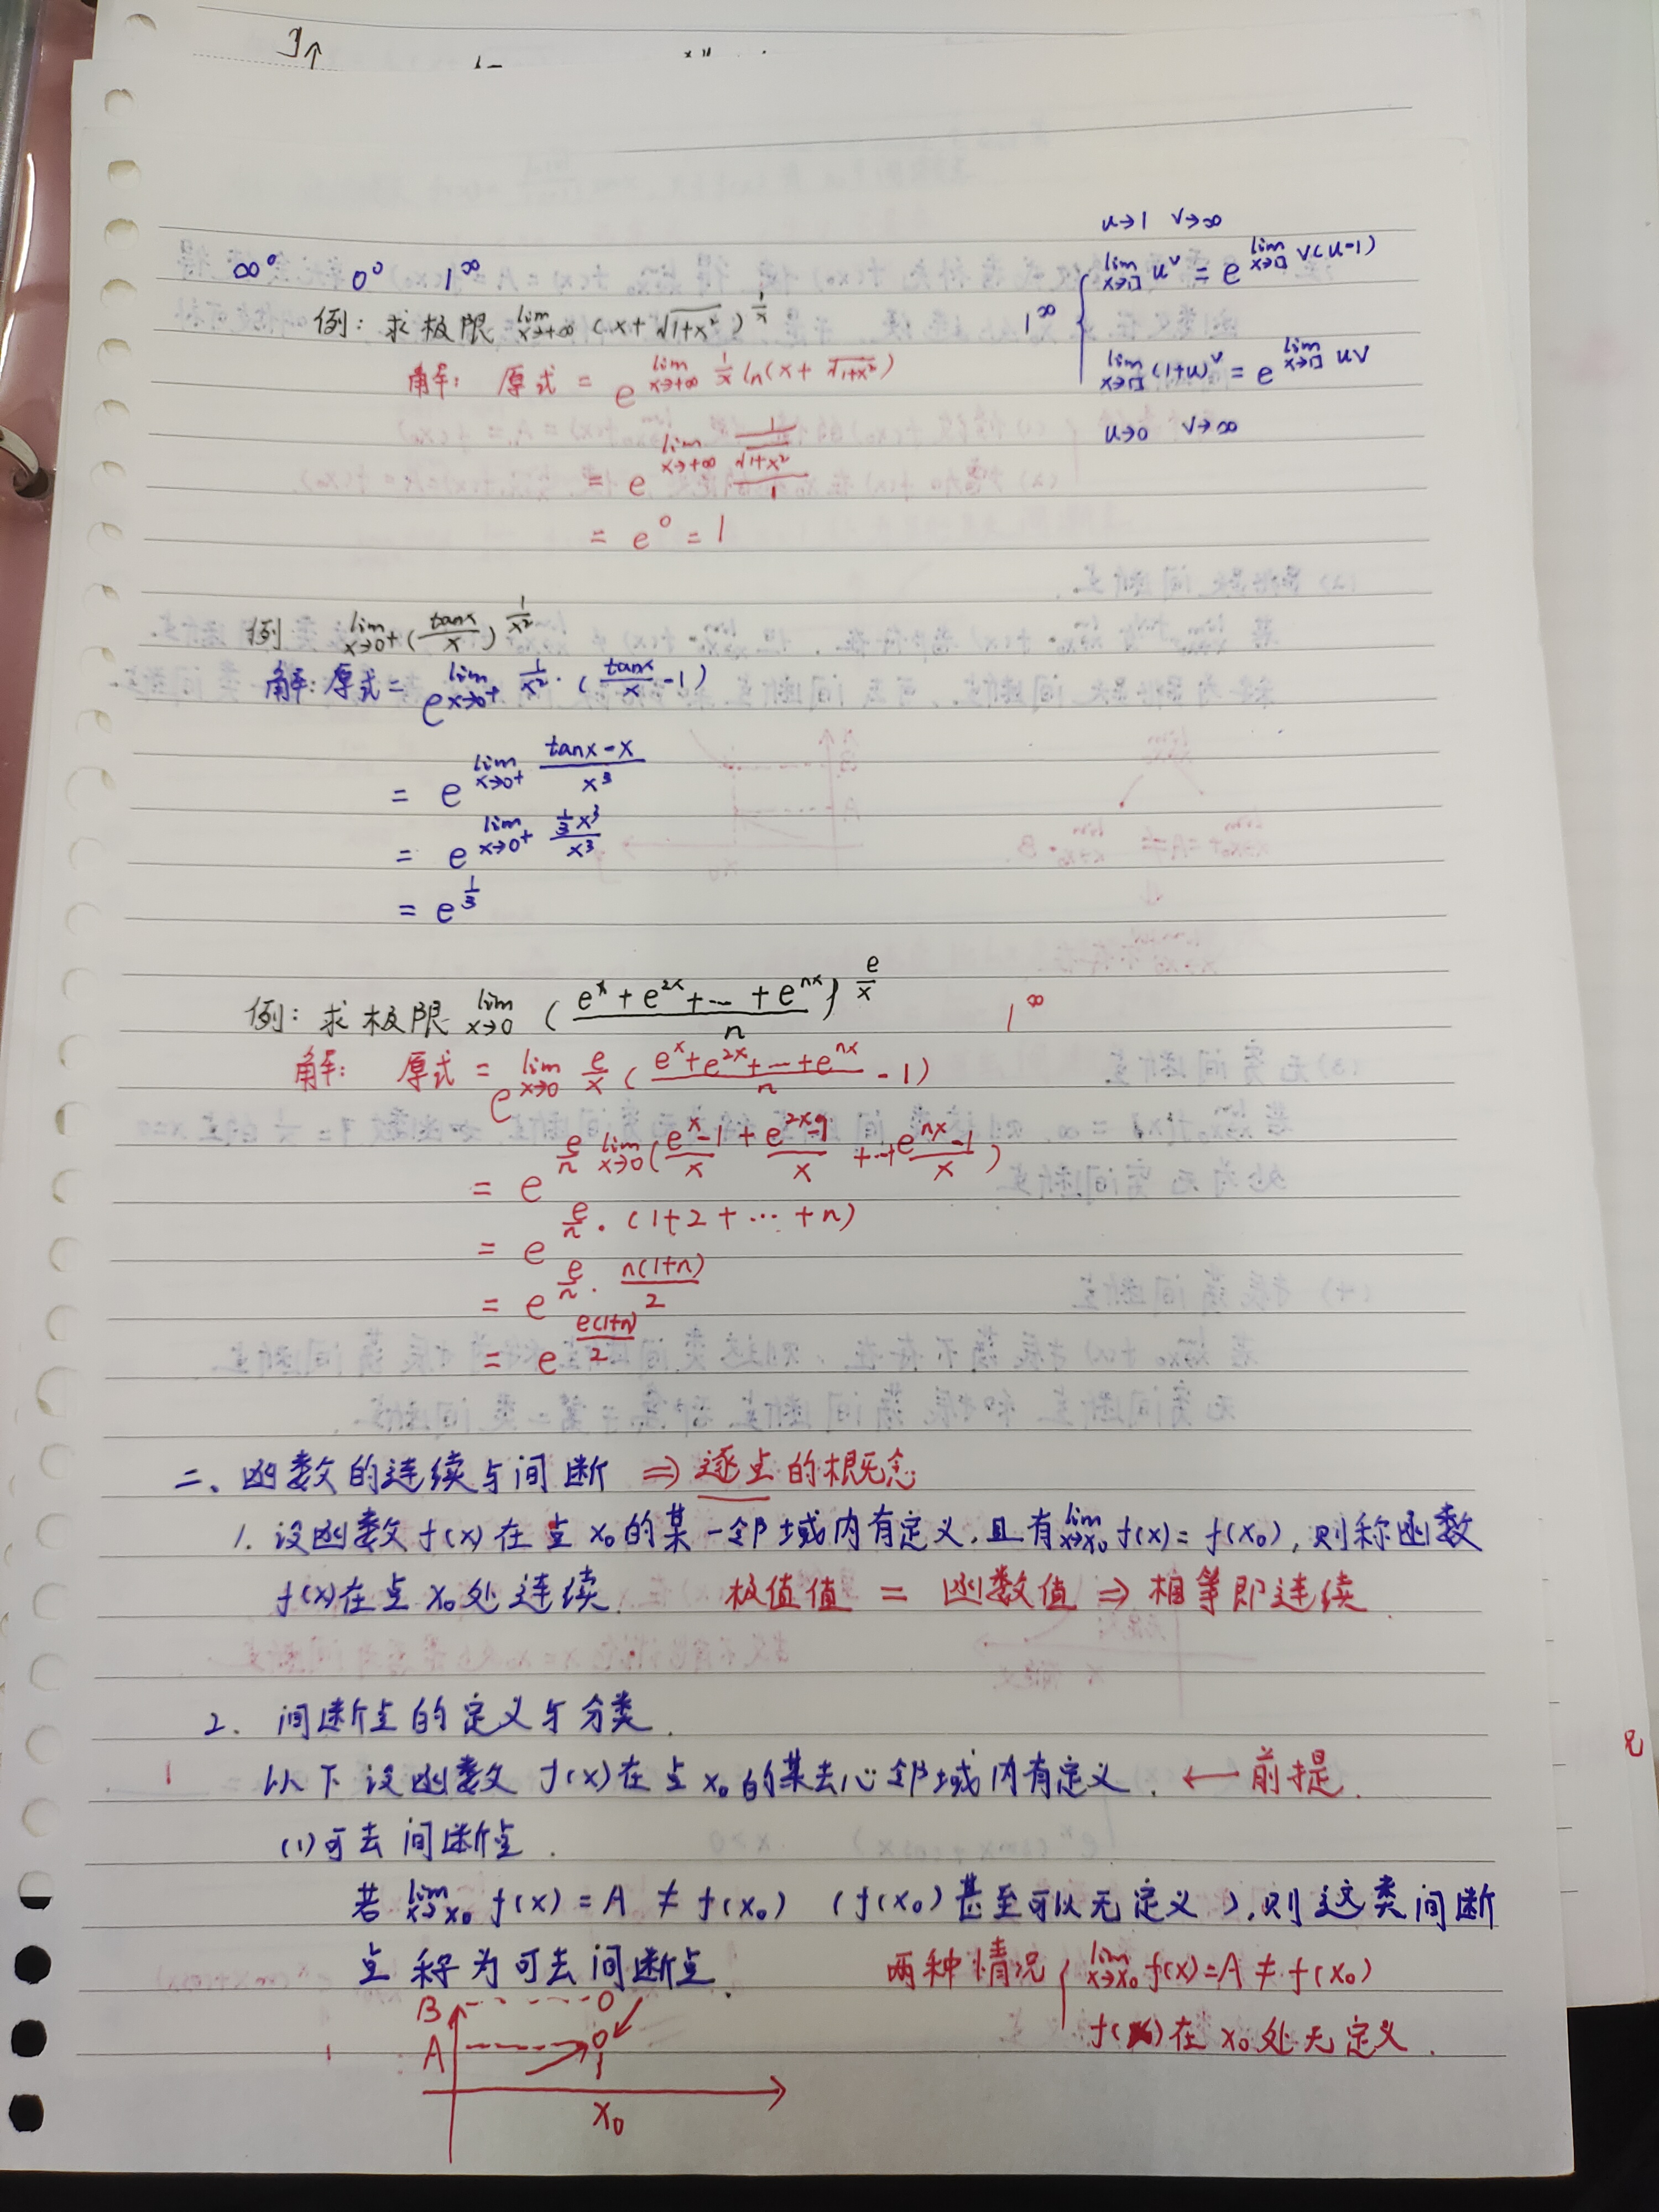 ∞⁰ 0⁰ 1^∞
u→1 v→∞
1^∞ { lim_{x→□} u^v = e^{lim_{x→□} v(u-1)}
lim_{x→□} (1+u)^v = e^{lim_{x→□} uv}
u→0 v→∞
例: 求极限 lim_{x→+∞} (x+√(1+x²))^{1/x}
解: 原式 = e^{lim_{x→+∞} 1/x ln(x+√(1+x²))}
= e^{lim_{x→+∞} (1/√(1+x²))/1}
= e⁰ = 1
例 lim_{x→0+} (tanx/x)^{1/x²}
解: 原式 = e^{lim_{x→0+} 1/x²·(tanx/x -1)}
= e^{lim_{x→0+} (tanx-x)/x³}
= e^{lim_{x→0+} (1/3 x³)/x³}
= e^{1/3}
例: 求极限 lim_{x→0} ((e^x+e^{2x}+…+e^{nx})/n)^{e/x} 1^∞
解: 原式 = e^{lim_{x→0} e/x ((e^x+e^{2x}+…+e^{nx})/n -1)}
= e^{e/n lim_{x→0} ((e^x-1)/x + (e^{2x}-1)/x +…+ (e^{nx}-1)/x)}
= e^{e/n·(1+2+…+n)}
= e^{e/n·n(1+n)/2}
= e^{e(1+n)/2}
二、函数的连续与间断 ⇒ 逐点的概念
1. 设函数f(x)在点x₀的某一邻域内有定义,且有lim_{x→x₀} f(x)=f(x₀),则称函数
f(x)在点x₀处连续. 极值值 = 函数值 ⇒ 相等即连续
2. 间断点的定义与分类.
以下设函数f(x)在点x₀的某去心邻域内有定义. ← 前提.
(1)可去间断点.
若 lim_{x→x₀} f(x)=A ≠ f(x₀) (f(x₀)甚至可以无定义),则这类间断
点称为可去间断点.
两种情况 { lim_{x→x₀} f(x)=A ≠ f(x₀)
f(x)在x₀处无定义.
B
A
x₀